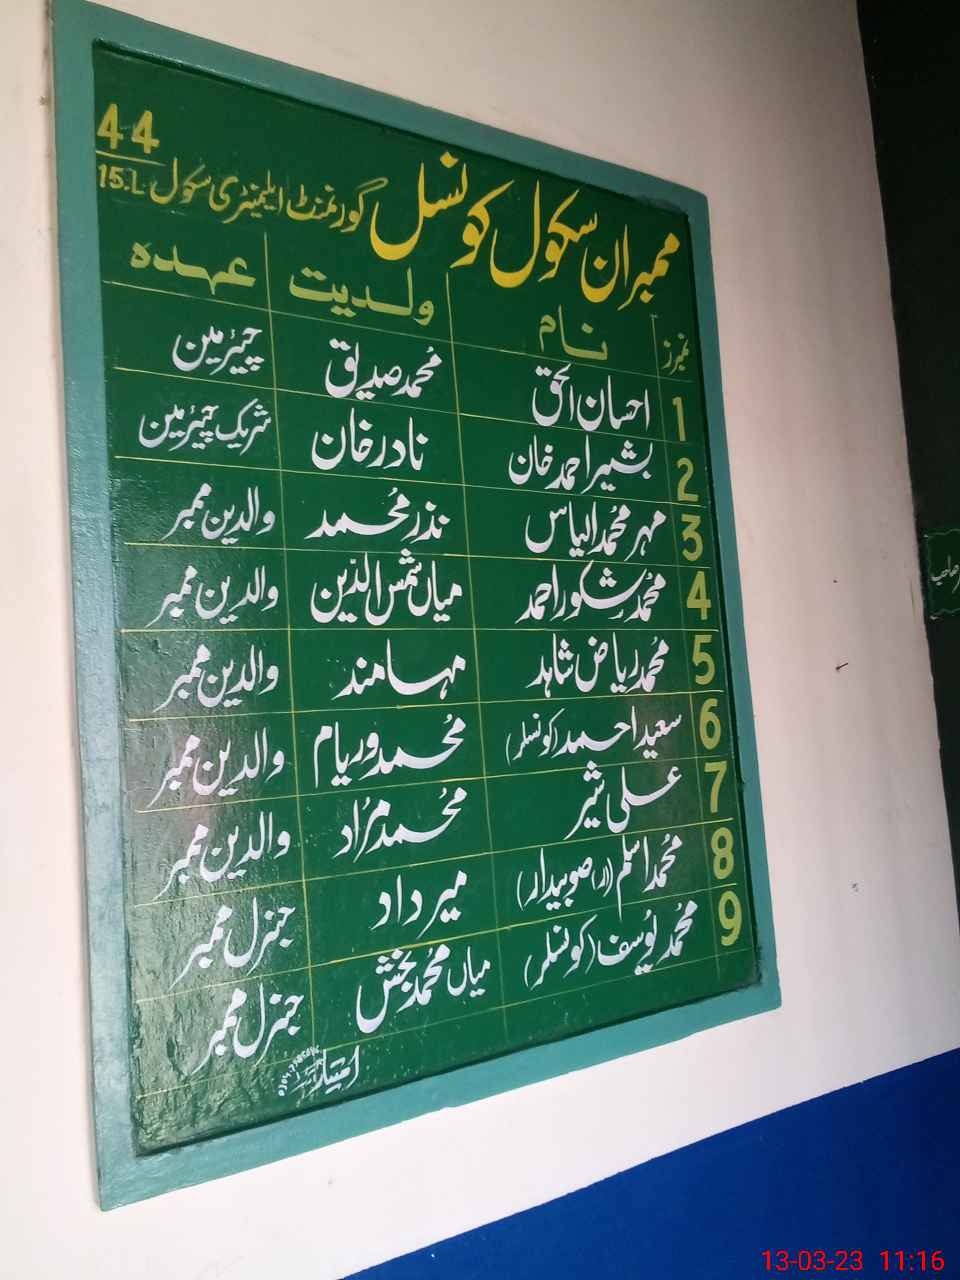 ممبران سکول کونسل گورنمنٹ ایلیمنٹری سکول 44/15.L
نمبرز نام ولدیت عہدہ
1 احسان الحق محمد صدیق چیئرمین
2 بشیر احمد خان نادر خان شریک چیئرمین
3 مہر محمد الیاس نذر محمد والدین ممبر
4 محمد شکور احمد میاں شمس الدین والدین ممبر
5 محمد ریاض شاہد مہامند والدین ممبر
6 سعید احمد (کونسلر) محمد وریام والدین ممبر
7 علی شیر محمد مراد والدین ممبر
8 محمد اسلم (ر) صوبیدار) میر داد جنرل ممبر
9 محمد یوسف (کونسلر) میاں محمد بخش جنرل ممبر
صاحب
13-03-23 11:16